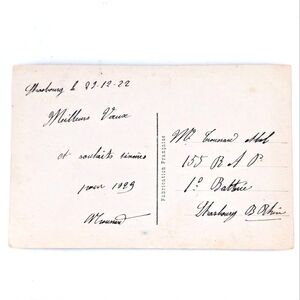 Strasbourg le 29-12-22
Meilleurs Vœux
et souhaits sincères
pour 1923
Fabrication Française
155 R A P.
1e Batterie
Strasbourg B Rhin